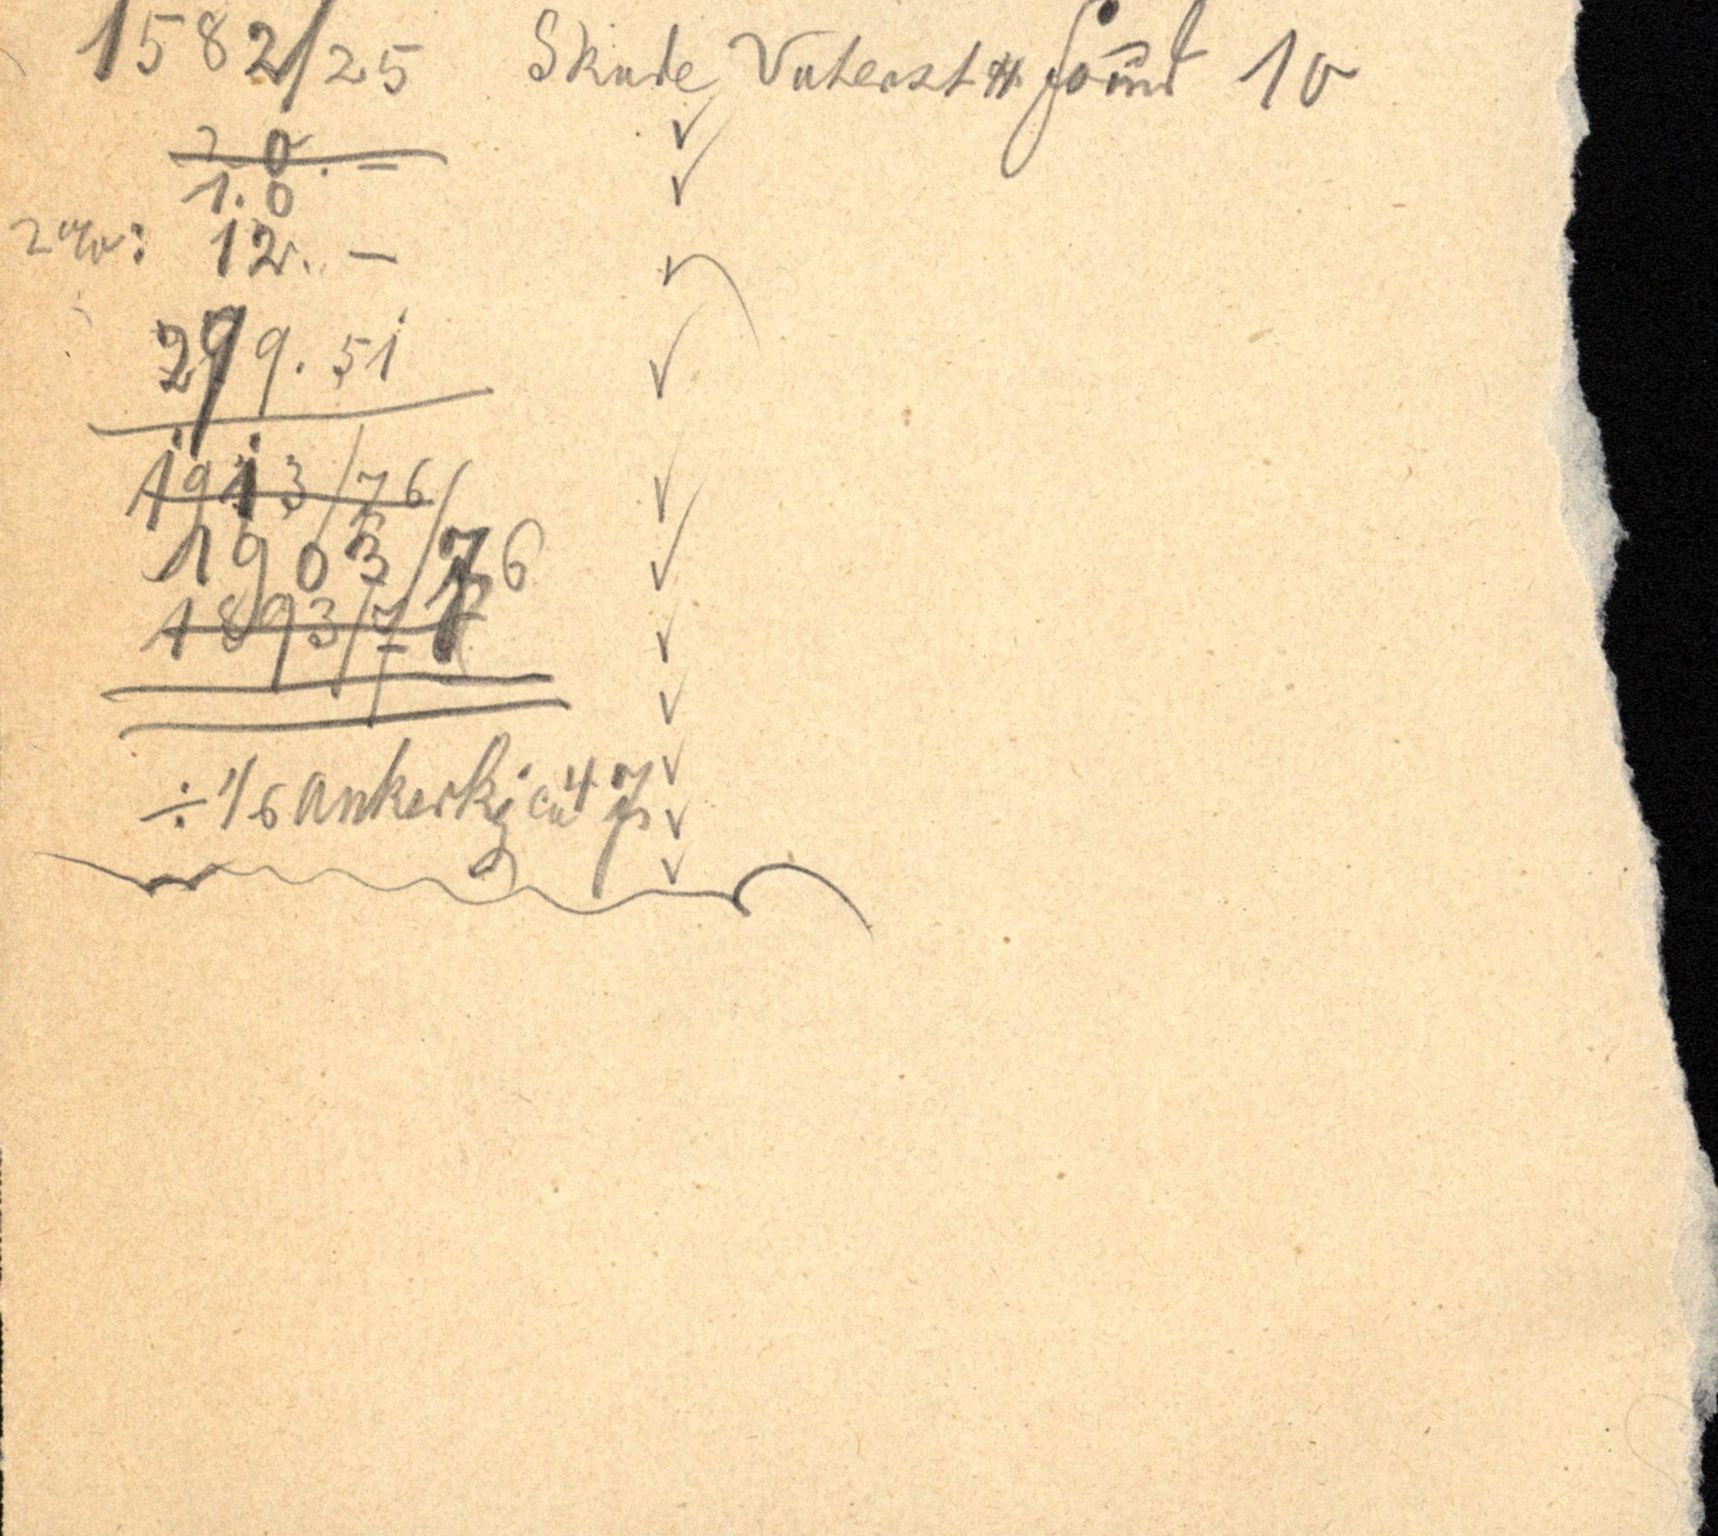 1582/25 Skude Vaterst found 10
20. =
1.0
2%: 12. —
299.51
1913/76
1903/76
1893/7
÷ 1/6 Ankerkj ca 4